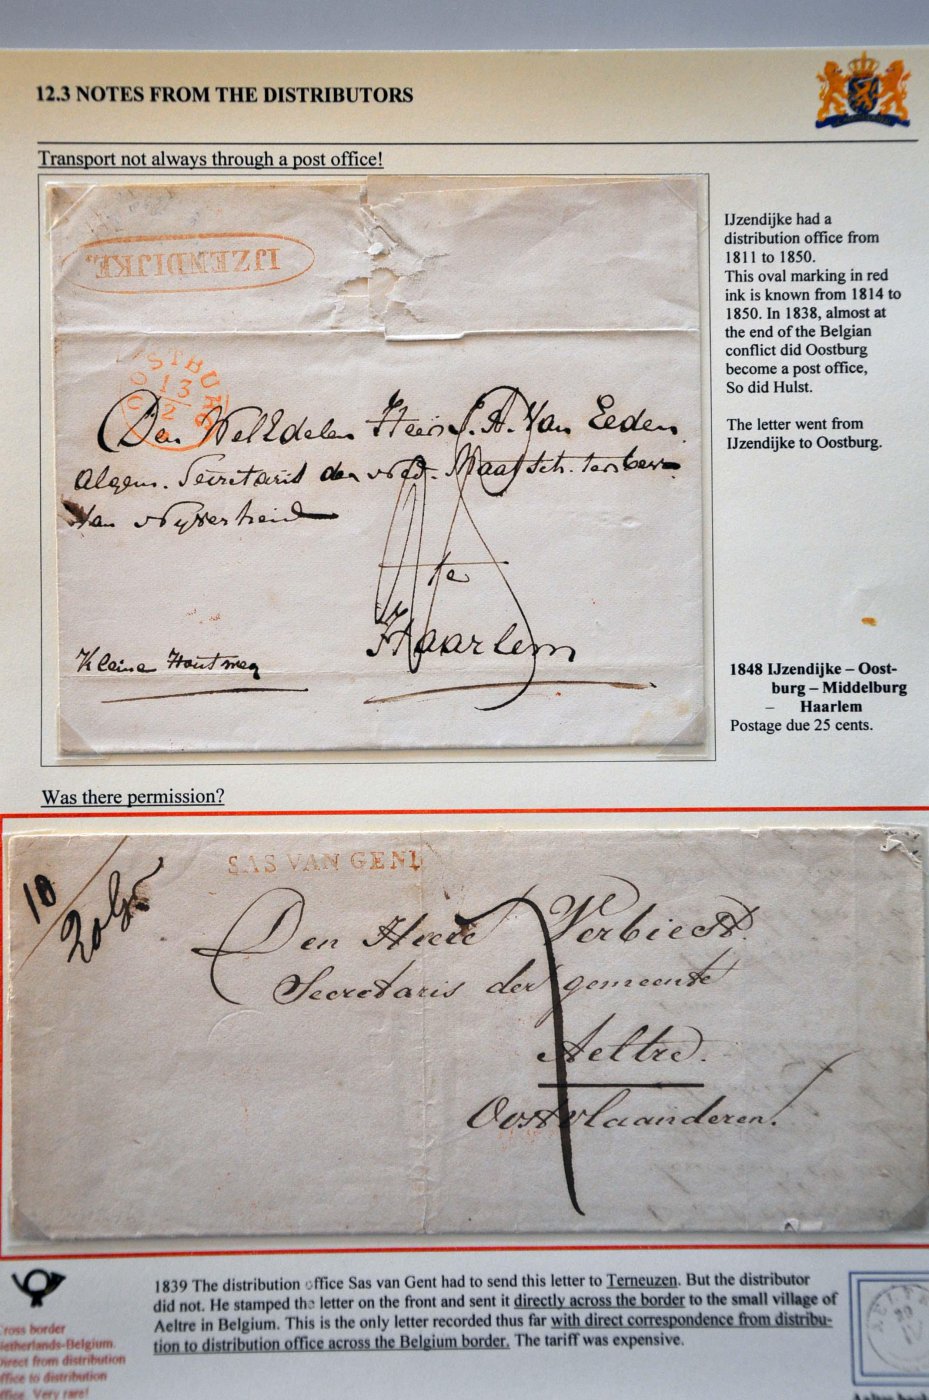 12.3 NOTES FROM THE DISTRIBUTORS
Transport not always through a post office!
IJZENDIJKE
OOSTBURG
13
2
Den WelEdelen Heer J. A. Van Eeden
Algem. Secretaris der Ned. Maatsch. ter bev.
Van Nyverheid
te
Haarlem
Kleine Houtweg
IJzendijke had a
distribution office from
1811 to 1850.
This oval marking in red
ink is known from 1814 to
1850. In 1838, almost at
the end of the Belgian
conflict did Oostburg
become a post office,
So did Hulst.
The letter went from
IJzendijke to Oostburg.
1848 IJzendijke – Oost-
burg – Middelburg
– Haarlem
Postage due 25 cents.
Was there permission?
10
SAS VAN GENT
Den Heere Verbiest.
Secretaris der gemeente
Aeltre.
Oostvlaanderen.
1839 The distribution office Sas van Gent had to send this letter to Terneuzen. But the distributor
did not. He stamped the letter on the front and sent it directly across the border to the small village of
Aeltre in Belgium. This is the only letter recorded thus far with direct correspondence from distribu-
tion to distribution office across the Belgium border. The tariff was expensive.
Cross border
Netherlands-Belgium.
Direct from distribution
office to distribution
office. Very rare!